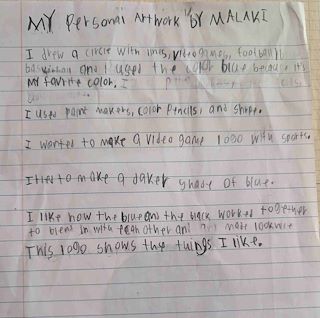 MY Personal Artwork BY MALAKI
I drew a circle with lines, video games, football,
and I used the color blue because it's
my favorite color, I
I used paint makers, color pencils, and shape.
I wanted to make a video game logo with sports.
I tried to make a daker shade of blue.
I like how the blue and the black worked together
to blend in with each other and make look
This logo shows the things I like.